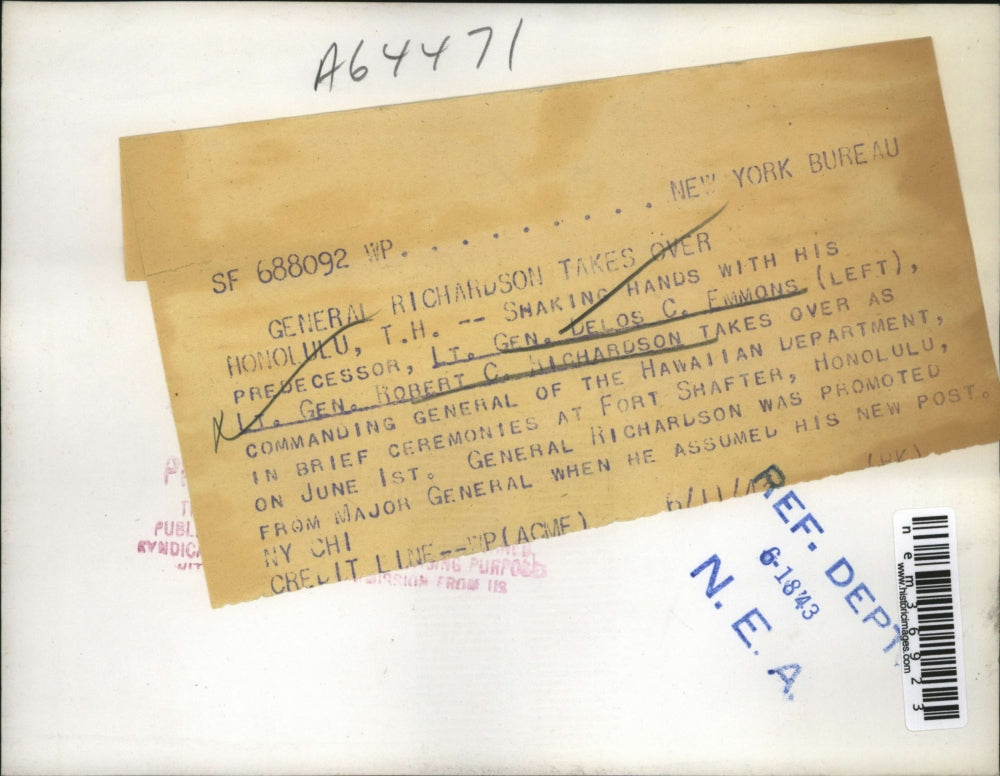 A64471
SF 688092 WP. . . . . . . . . . NEW YORK BUREAU
GENERAL RICHARDSON TAKES OVER
HONOLULU, T.H. -- SHAKING HANDS WITH HIS
PREDECESSOR, LT. GEN. DELOS C. EMMONS (LEFT),
LT. GEN. ROBERT C. RICHARDSON TAKES OVER AS
COMMANDING GENERAL OF THE HAWAIIAN DEPARTMENT,
IN BRIEF CEREMONIES AT FORT SHAFTER, HONOLULU,
ON JUNE 1ST. GENERAL RICHARDSON WAS PROMOTED
FROM MAJOR GENERAL WHEN HE ASSUMED HIS NEW POST.
NY CHI
CREDIT LINE--WP(ACME)
PUBL
PURPOSES
FROM US
REF. DEPT
6-18'43
N. E. A.
nem36923
www.historicimages.com